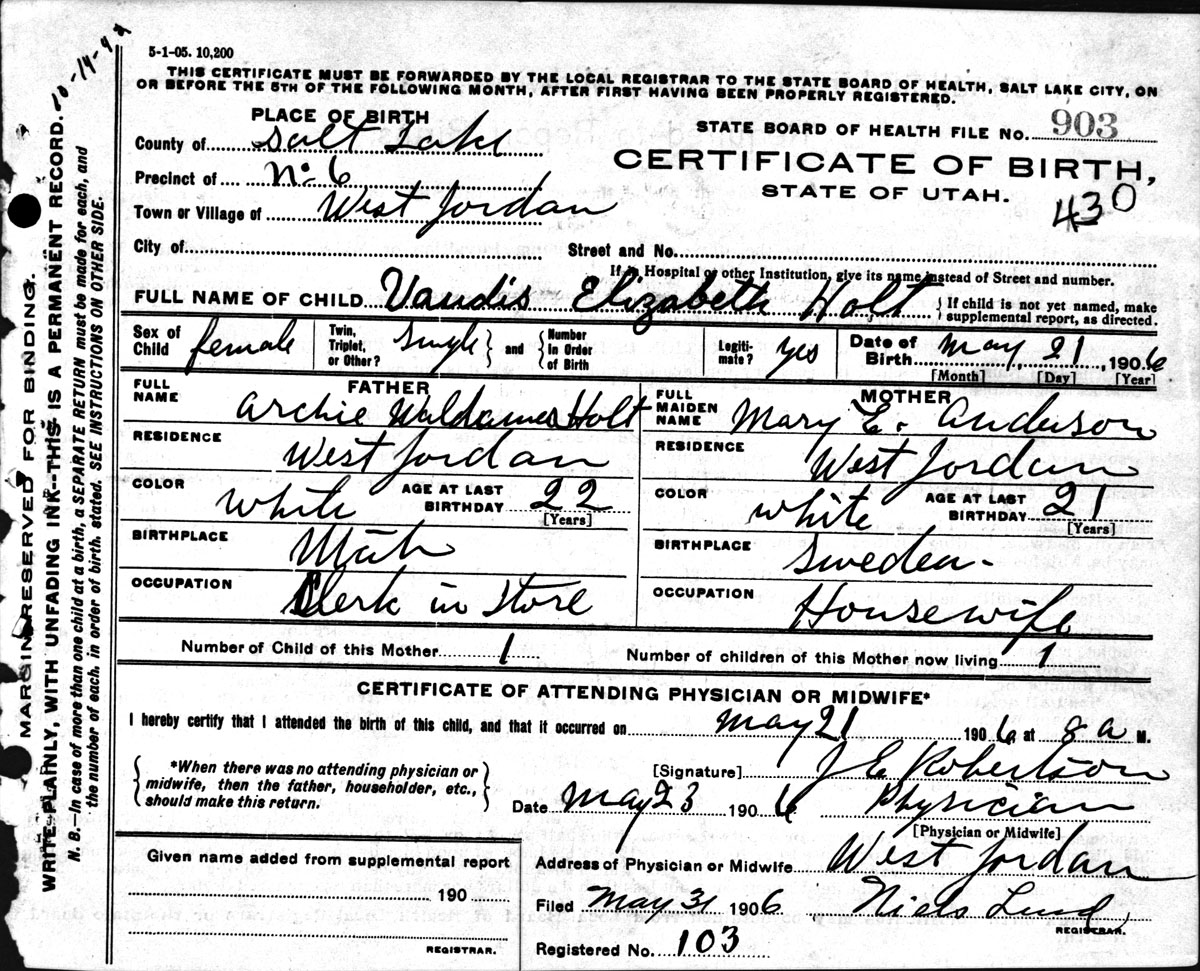 10-14-42
5-1-05. 10,200
THIS CERTIFICATE MUST BE FORWARDED BY THE LOCAL REGISTRAR TO THE STATE BOARD OF HEALTH, SALT LAKE CITY, ON
OR BEFORE THE 5TH OF THE FOLLOWING MONTH, AFTER FIRST HAVING BEEN PROPERLY REGISTERED.
PLACE OF BIRTH
County of Salt Lake
Precinct of No 6
Town or Village of West Jordan
STATE BOARD OF HEALTH FILE No. 903
CERTIFICATE OF BIRTH,
STATE OF UTAH.
430
City of Street and No.
If in Hospital or other Institution, give its name instead of Street and number.
FULL NAME OF CHILD Vaudis Elizabeth Holt { If child is not yet named, make
supplemental report, as directed.
Sex of Child female Twin, Triplet, or Other? Single } and { Number In Order of Birth Legiti-mate? yes Date of Birth May 21, 1906
[Month] [Day] [Year]
FATHER
FULL NAME Archie Waldamer Holt
RESIDENCE West Jordan
COLOR White AGE AT LAST BIRTHDAY 22
[Years]
BIRTHPLACE Utah
OCCUPATION Clerk in Store
MOTHER
FULL MAIDEN NAME Mary E. Anderson
RESIDENCE West Jordan
COLOR White AGE AT LAST BIRTHDAY 21
[Years]
BIRTHPLACE Sweden-
OCCUPATION Housewife
Number of Child of this Mother 1 Number of children of this Mother now living 1
CERTIFICATE OF ATTENDING PHYSICIAN OR MIDWIFE*
I hereby certify that I attended the birth of this child, and that it occurred on May 21 1906 at 8 a M.
{ *When there was no attending physician or
midwife, then the father, householder, etc.,
should make this return. }
[Signature] J E Robertson
Date May 23 1906 Physician
[Physician or Midwife]
Given name added from supplemental report
190
REGISTRAR.
Address of Physician or Midwife West Jordan
Filed May 31 1906 Niels Lind
REGISTRAR.
Registered No. 103
MARGIN RESERVED FOR BINDING.
WRITE PLAINLY, WITH UNFADING INK--THIS IS A PERMANENT RECORD.
N. B.—In case of more than one child at a birth, a SEPARATE RETURN must be made for each, and
the number of each, in order of birth, stated. SEE INSTRUCTIONS ON OTHER SIDE.